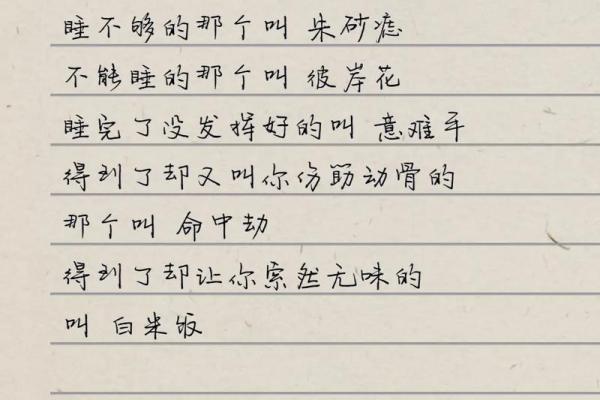 睡不够的那个叫 朱砂痣
不能睡的那个叫 彼岸花
睡完了没发挥好的叫 意难平
得到了却又叫你伤筋动骨的
那个叫 命中劫
得到了却让你索然无味的
叫 白米饭